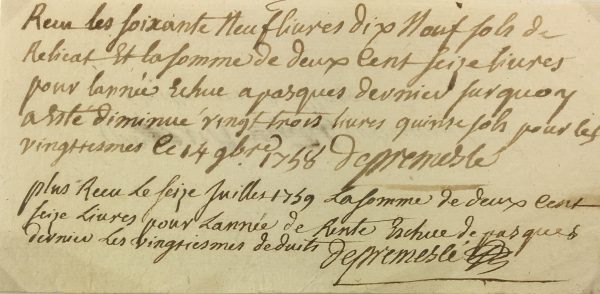 Reçu les soixante Neuf livres dix Neuf sols de
Relicat Et la somme de deux Cent seize livres
pour lannée Echue a pasques dernier surquoy
a esté diminue vingt trois livres quinse sols pour les
vingtiesmes le 14 9bre 1758 depremeslé
plus Receu Le seize Juillet 1759 La somme de deux Cent
seize Livres pour Lannée de Rente Eschue de pasques
dernier Les vingtiesmes deduits depremeslé